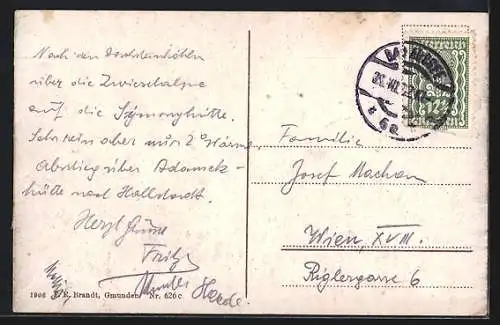 Nach den Dachsteinhöhlen
über die Zwieselalpe
auf die Simonyhütte.
Sehr rein aber nur 2° Wärme,
Abstieg über Adamek-
hütte nach Hallstadt.
Herzl. Grüsse
Fritz
Familie
Josef Machan
Wien, XVIII.
Riglergasse 6
1906 E. Brandt, Gmunden. Nr. 626 c